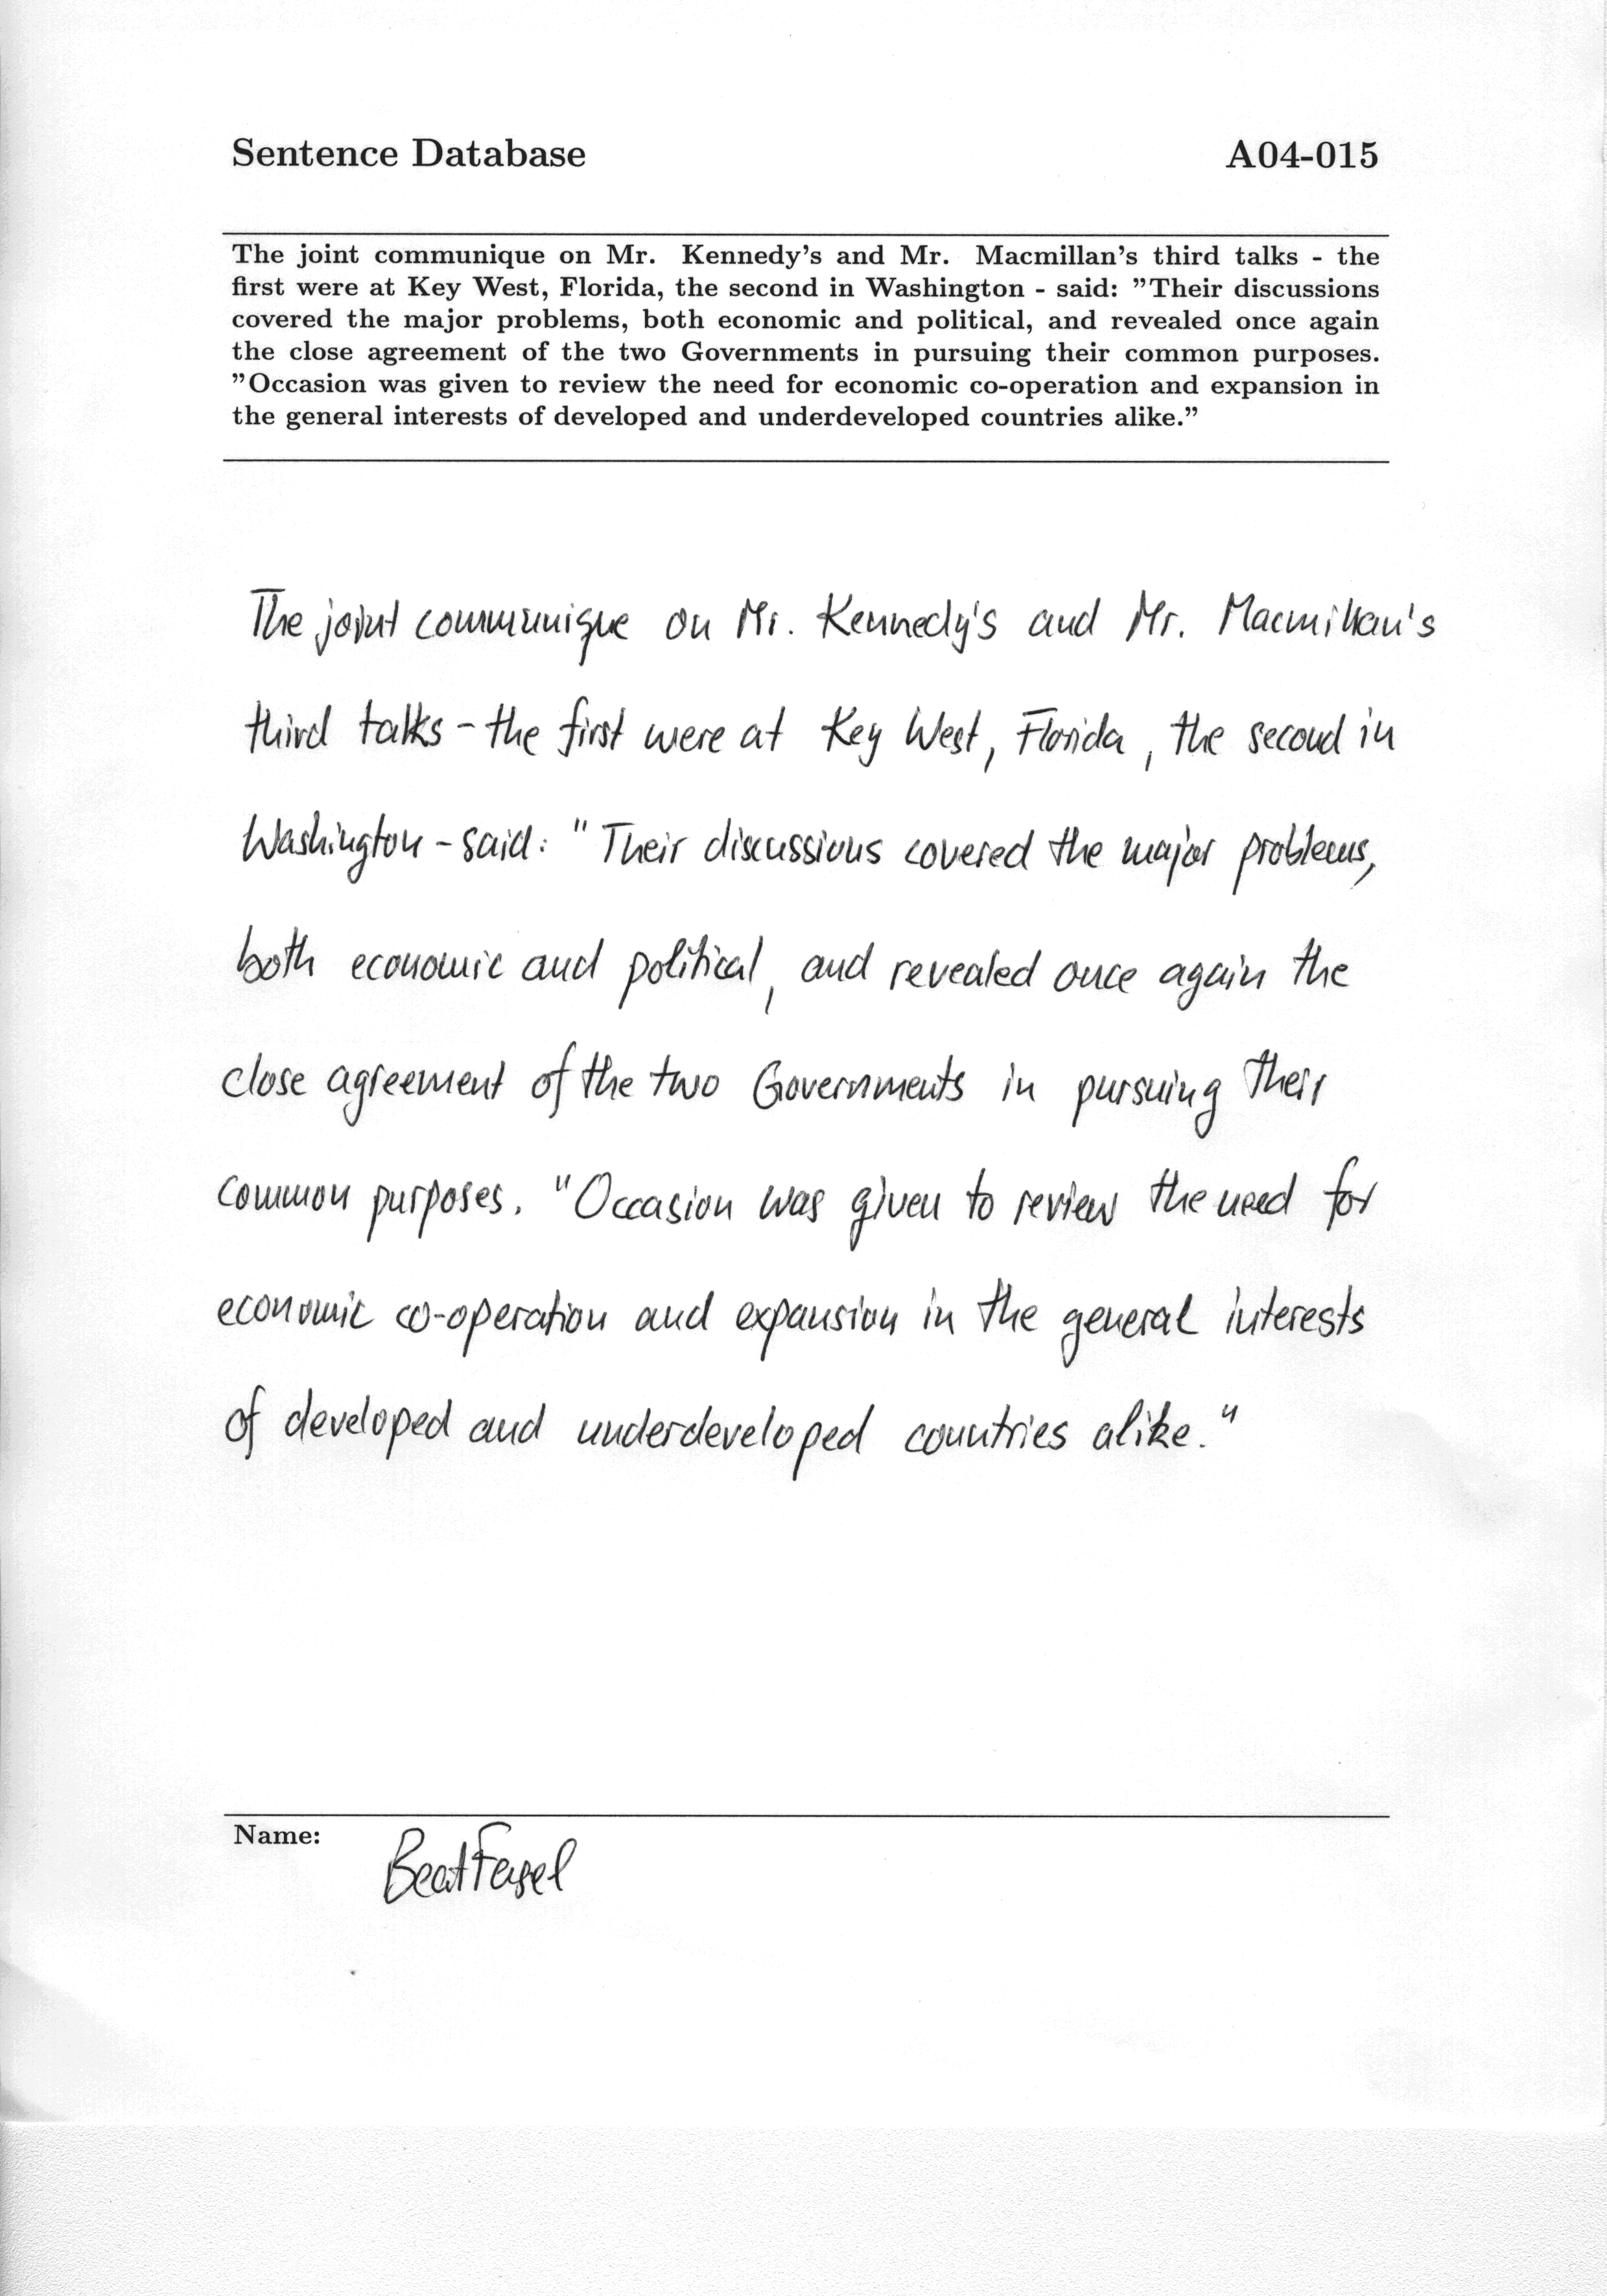 Sentence Database A04-015
The joint communique on Mr. Kennedy's and Mr. Macmillan's third talks - the
first were at Key West, Florida, the second in Washington - said: "Their discussions
covered the major problems, both economic and political, and revealed once again
the close agreement of the two Governments in pursuing their common purposes.
"Occasion was given to review the need for economic co-operation and expansion in
the general interests of developed and underdeveloped countries alike."
The joint communique on Mr. Kennedy's and Mr. Macmillan's
third talks - the first were at Key West, Florida, the second in
Washington - said: "Their discussions covered the major problems,
both economic and political, and revealed once again the
close agreement of the two Governments in pursuing their
common purposes. "Occasion was given to review the need for
economic co-operation and expansion in the general interests
of developed and underdeveloped countries alike."
Name:
Beat